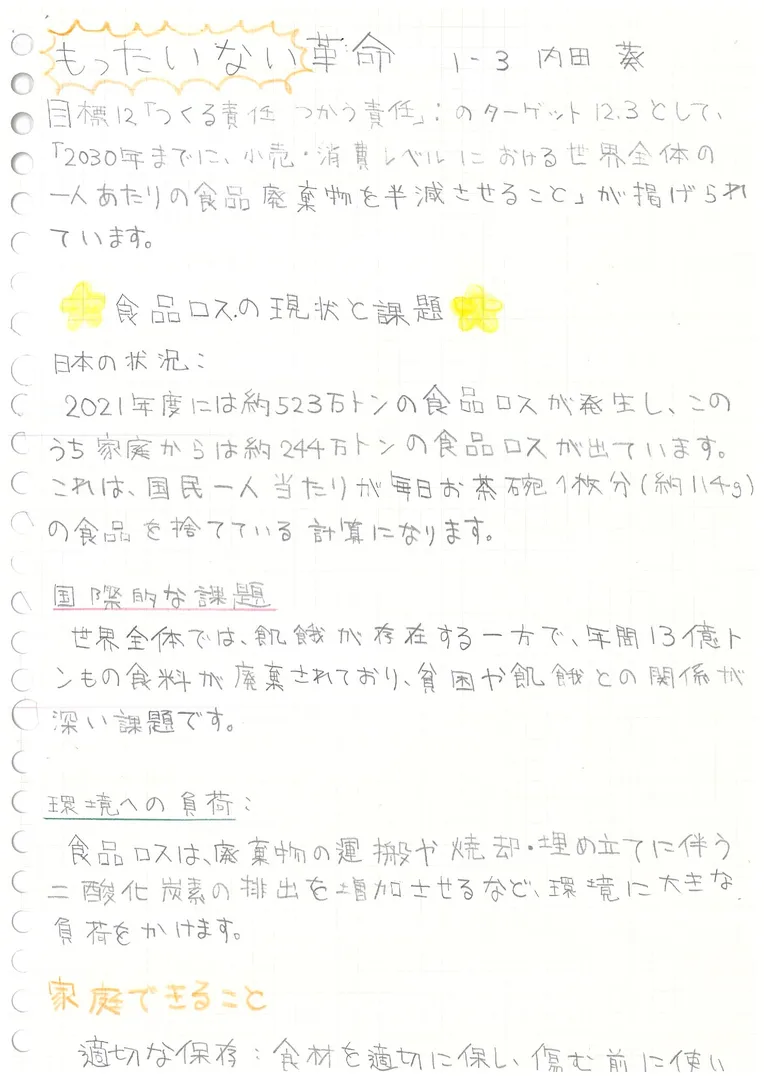 もったいない革命 1-3 内田 葵
目標12「つくる責任 つかう責任」:のターゲット12.3として、
「2030年までに、小売・消費レベルにおける世界全体の
一人あたりの食品廃棄物を半減させること」が掲げられ
ています。
食品ロスの現状と課題
日本の状況:
2021年度には約523万トンの食品ロスが発生し、この
うち家庭からは約244万トンの食品ロスが出ています。
これは、国民一人当たりが毎日お茶碗1枚分(約114g)
の食品を捨てている計算になります。
国際的な課題
世界全体では、飢餓が存在する一方で、年間13億ト
ンもの食料が廃棄されており、貧困や飢餓との関係が
深い課題です。
環境への負荷:
食品ロスは、廃棄物の運搬や焼却・埋め立てに伴う
二酸化炭素の排出を増加させるなど、環境に大きな
負荷をかけます。
家庭できること
適切な保存:食材を適切に保し、傷む前に使い